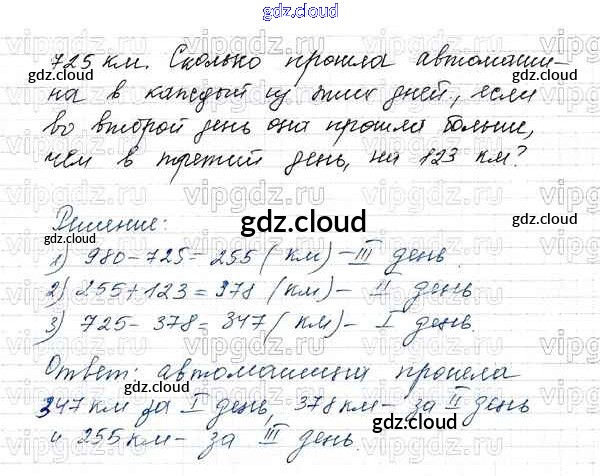 gdz.cloud
725 км. Сколько прошла автомаши-
на в каждый из этих дней, если
во второй день она прошла больше,
чем в третий день, на 123 км?
Решение:
gdz.cloud
1) 980-725=255(км)-III день.
2) 255+123=378 (км)- II день
3) 725-378=347(км)- I день.
Ответ: автомашина прошла
347 км за I день, 378 км- за II день
и 255 км- за III день.